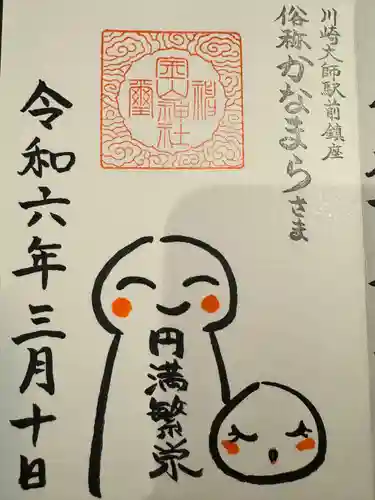 川崎大師駅前鎮座
俗称かなまらさま
金山神社
円満繁栄
令和六年三月十日